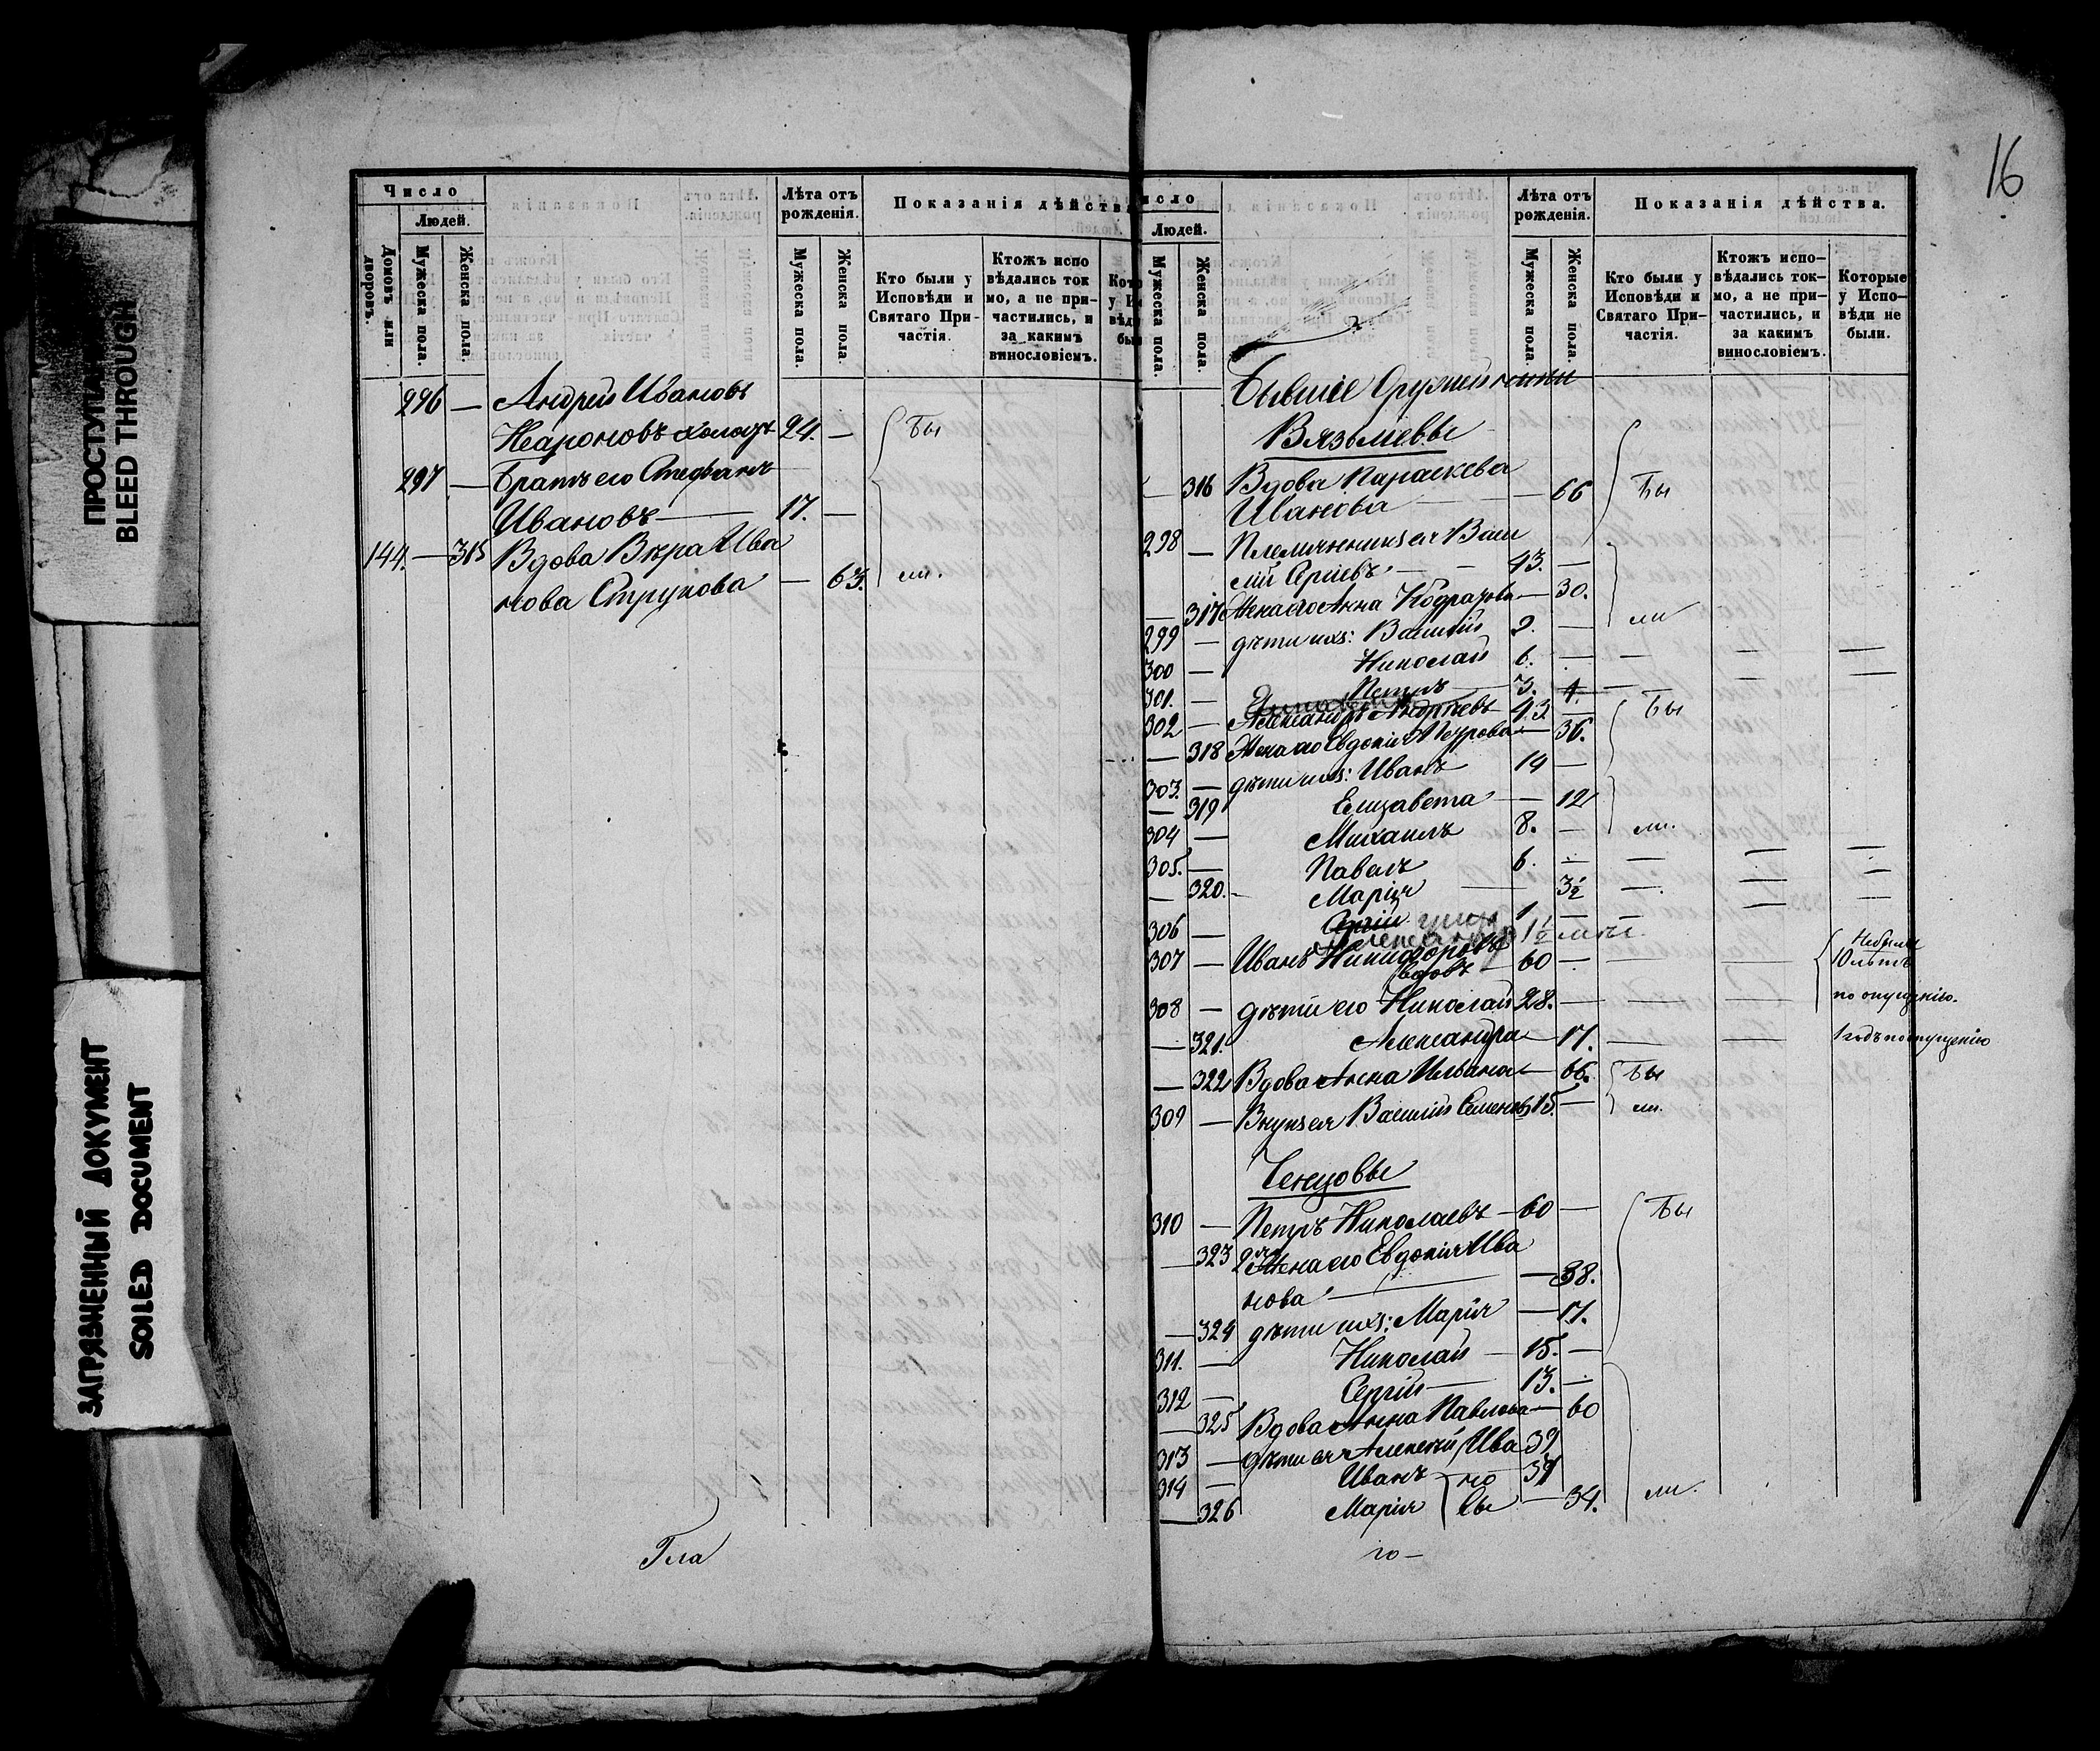 ПРОСТУПАН
BLEED THROUGH
ЗАГРЯЗНЕННЫЙ ДОКУМЕНТ
SOILED DOCUMENT
Число
Людей.
Домовъ или дворовъ.
Мужеска пола.
Женска пола.
Лѣта отъ рожденія.
Мужеска пола.
Женска пола.
Показанія дѣйства
Кто были у Исповѣди и Святаго Причастія.
Ктожъ исповѣдались ток мо, а не причастились, и за какимъ винословіемъ.
296 — Андрей Ивановъ
холостъ 24. — Бы
297 — Братъ его Стефанъ
Ивановъ — 17. —
144. — 315 Вдова Вѣра Ива
нова Струкова — 63. ли.
Гла
16
исло
Людей.
Мужеска пола.
Женска пола.
Лѣта отъ рожденія.
Мужеска пола.
Женска пола.
Показанія дѣйства.
Кто были у Исповѣди и Святаго Причастія.
Ктожъ исповѣдались токмо, а не причастились, и за какимъ винословіемъ.
Которые у Исповѣди не были.
Бывшіе Оружейники
Вяземцевы
— 316 Вдова Параскева
Иванова — 66 Бы
298 — Племянникъ ея Васи
лій Сергіевъ — 43. —
— 317 Жена его Анна — 30.
299 — дѣти ихъ: Василій 9. — ли
300 — Николай 6. — — — —
301. — Петръ 3. — — —
302 — Александръ Андреевъ 43 — Бы
— 318 Жена его Евдокія Петрова — 36.
303. — дѣти ихъ: Иванъ 14 —
— 319 Елизавета — 12
304 — Михаилъ 8. — ли.
305. — Павелъ 6. — — — —
— 320. — Марія — 3½ — — —
306 — Сергій 1 — —
307 — Иванъ Никифоровъ
вдовъ 60 — — — Небылъ 10 лѣтъ
308 — дѣти его Николай 28. — — — по опущенію.
— 321. Александра — 17. — — 1 годъ по опущенію
— 322 Вдова Анна Ильина — 66. Бы
309 — Внукъ ея Василій Семеновъ 15. — ли.
Ченцовы
310 — Петръ Николаевъ — 60 — Бы
— 323 2я Жена его Евдокія Ива
нова — 38.
— 324 дѣти ихъ: Марія — 17.
311. — Николай — 15. —
312 — Сергій — 13. —
— 325 Вдова Анна Павлова — 60
313 — дѣти ея Алексѣй Ива 39
314 — Иванъ но 37
— 326 Марія вы — 34. ли.
го —